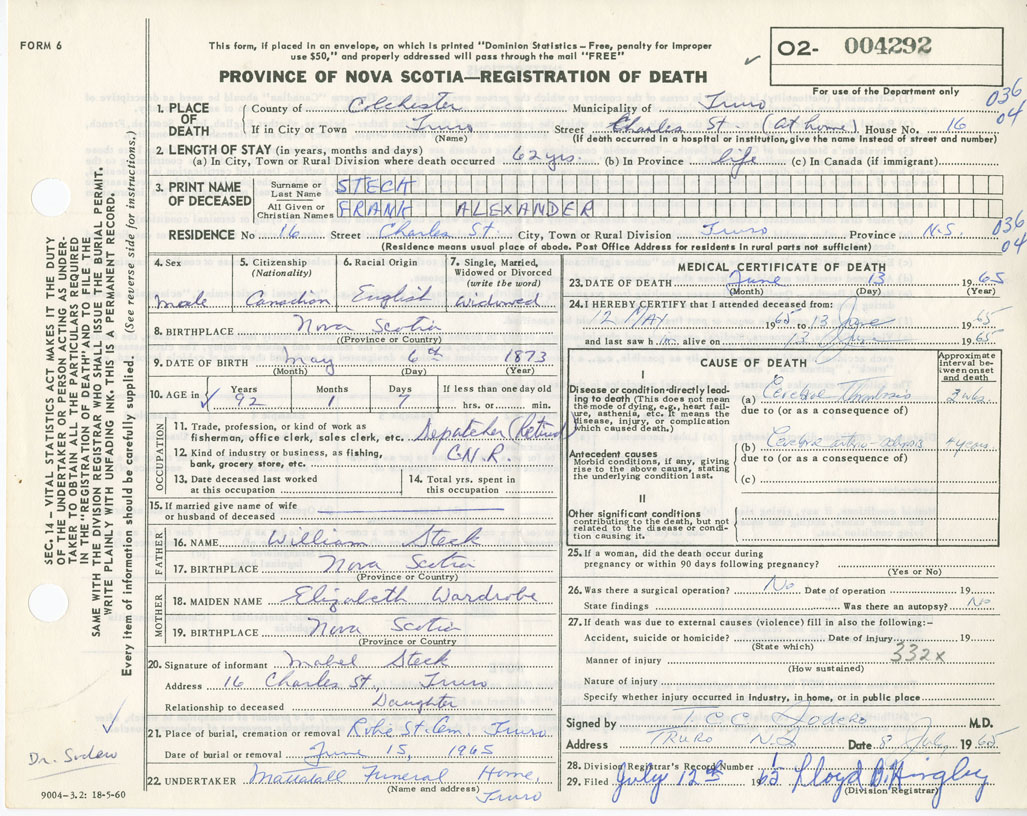 FORM 6
This form, if placed in an envelope, on which is printed "Dominion Statistics – Free, penalty for improper
use $50," and properly addressed will pass through the mail "FREE"
PROVINCE OF NOVA SCOTIA—REGISTRATION OF DEATH
O2- 004292
For use of the Department only
036
04
1. PLACE OF DEATH
County of Colchester Municipality of Truro
If in City or Town Truro Street Charles St (at home) House No. 16
(Name) (If death occurred in a hospital or institution, give the name instead of street and number)
2. LENGTH OF STAY (in years, months and days)
(a) In City, Town or Rural Division where death occurred 62 yrs. (b) In Province life (c) In Canada (if immigrant)
3. PRINT NAME OF DECEASED
Surname or Last Name STECH
All Given or Christian Names FRANK ALEXANDER
RESIDENCE No 16 Street Charles St City, Town or Rural Division Truro Province N.S.
036
04
(Residence means usual place of abode. Post Office Address for residents in rural parts not sufficient)
4. Sex
male
5. Citizenship
(Nationality)
Canadian
6. Racial Origin
English
7. Single, Married,
Widowed or Divorced
(write the word)
widowed
8. BIRTHPLACE Nova Scotia
(Province or Country)
9. DATE OF BIRTH May 6th 1873
(Month) (Day) (Year)
10. AGE in Years Months Days If less than one day old
92 1 7 hrs. or min.
OCCUPATION
11. Trade, profession, or kind of work as
fisherman, office clerk, sales clerk, etc. Depatcher (Retired)
12. Kind of industry or business, as fishing,
bank, grocery store, etc. C.N.R.
13. Date deceased last worked
at this occupation
14. Total yrs. spent in
this occupation
15. If married give name of wife
or husband of deceased
FATHER
16. NAME William Steck
17. BIRTHPLACE Nova Scotia
(Province or Country)
MOTHER
18. MAIDEN NAME Elizabeth Wardrobe
19. BIRTHPLACE Nova Scotia
(Province or Country
20. Signature of informant Mabel Steck
Address 16 Charles St., Truro
Relationship to deceased Daughter
21. Place of burial, cremation or removal Robie St. Cem. Truro
Date of burial or removal June 15, 1965
22. UNDERTAKER Mattatall Funeral Home,
(Name and address)
Truro
MEDICAL CERTIFICATE OF DEATH
23. DATE OF DEATH June 13 1965
(Month) (Day) (Year)
24. I HEREBY CERTIFY that I attended deceased from:
12 MAY 1965 to 13 June 1965
and last saw h im alive on 13 June 1965
CAUSE OF DEATH
Approximate
interval be-
tween onset
and death
I
Disease or condition directly lead-
ing to death (This does not mean
the mode of dying, e.g., heart fail-
ure, asthenia, etc. It means the
disease, injury, or complication
which caused death.)
(a) Cerebral Thrombosis
due to (or as a consequence of)
Antecedent causes
Morbid conditions, if any, giving
rise to the above cause, stating
the underlying condition last.
(b)
due to (or as a consequence of)
(c)
II
Other significant conditions
contributing to the death, but not
related to the disease or condi-
tion causing it.
25. If a woman, did the death occur during
pregnancy or within 90 days following pregnancy?
(Yes or No)
26. Was there a surgical operation? No Date of operation 19
State findings Was there an autopsy? No
27. If death was due to external causes (violence) fill in also the following:-
Accident, suicide or homicide? Date of injury 19
(State which)
Manner of injury 332x
(How sustained)
Nature of injury
Specify whether injury occurred in industry, in home, or in public place
Signed by M.D.
Address TRURO N.S Date 8 July 1965
28. Division Registrar's Record Number
29. Filed July 12th 1965 Lloyd D. Hingley
(Division Registrar)
SEC. 14 – VITAL STATISTICS ACT MAKES IT THE DUTY
OF THE UNDERTAKER OR PERSON ACTING AS UNDER-
TAKER TO OBTAIN ALL THE PARTICULARS REQUIRED
IN THE "REGISTRATION OF DEATH" AND TO FILE THE
SAME WITH THE DIVISION REGISTRAR WHO SHALL ISSUE THE BURIAL PERMIT.
WRITE PLAINLY WITH UNFADING INK. THIS IS A PERMANENT RECORD.
Every item of information should be carefully supplied. (See reverse side for instructions.)
9004-3.2: 18-5-60